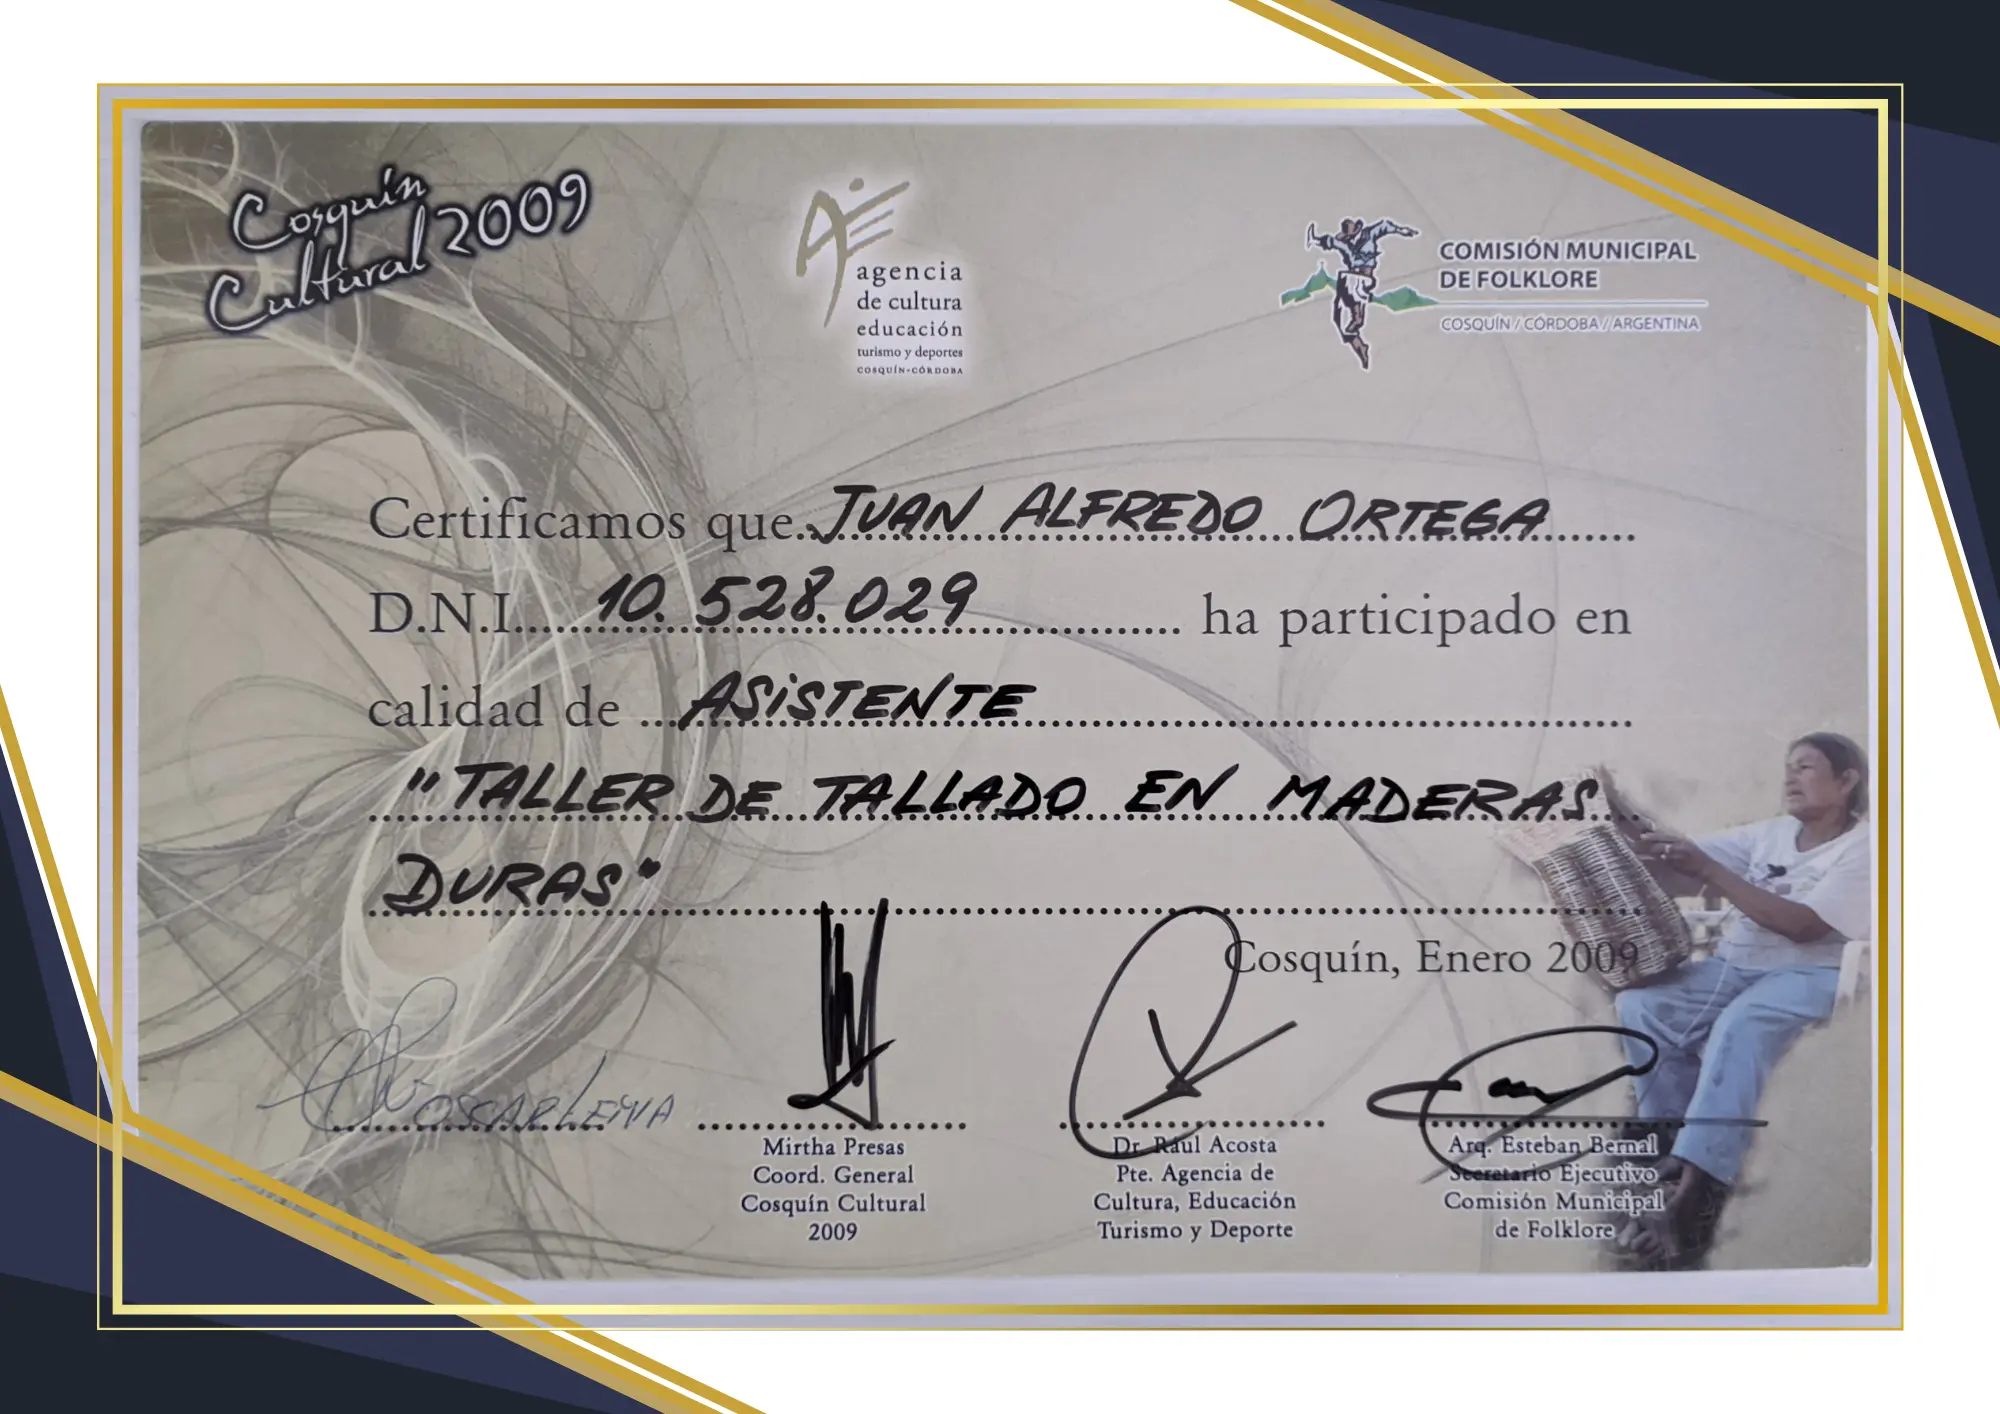 Cosquín
Cultural 2009
agencia
de cultura
educación
turismo y deportes
COSQUÍN-CÓRDOBA
COMISIÓN MUNICIPAL
DE FOLKLORE
COSQUÍN / CÓRDOBA / ARGENTINA
Certificamos que JUAN ALFREDO ORTEGA
D.N.I. 10.528.029 ha participado en
calidad de ASISTENTE
"TALLER DE TALLADO EN MADERAS
DURAS"
Cosquín, Enero 2009
OSCAR LEIVA
Mirtha Presas
Coord. General
Cosquín Cultural
2009
Dr. Raúl Acosta
Pte. Agencia de
Cultura, Educación
Turismo y Deporte
Arq. Esteban Bernal
Secretario Ejecutivo
Comisión Municipal
de Folklore